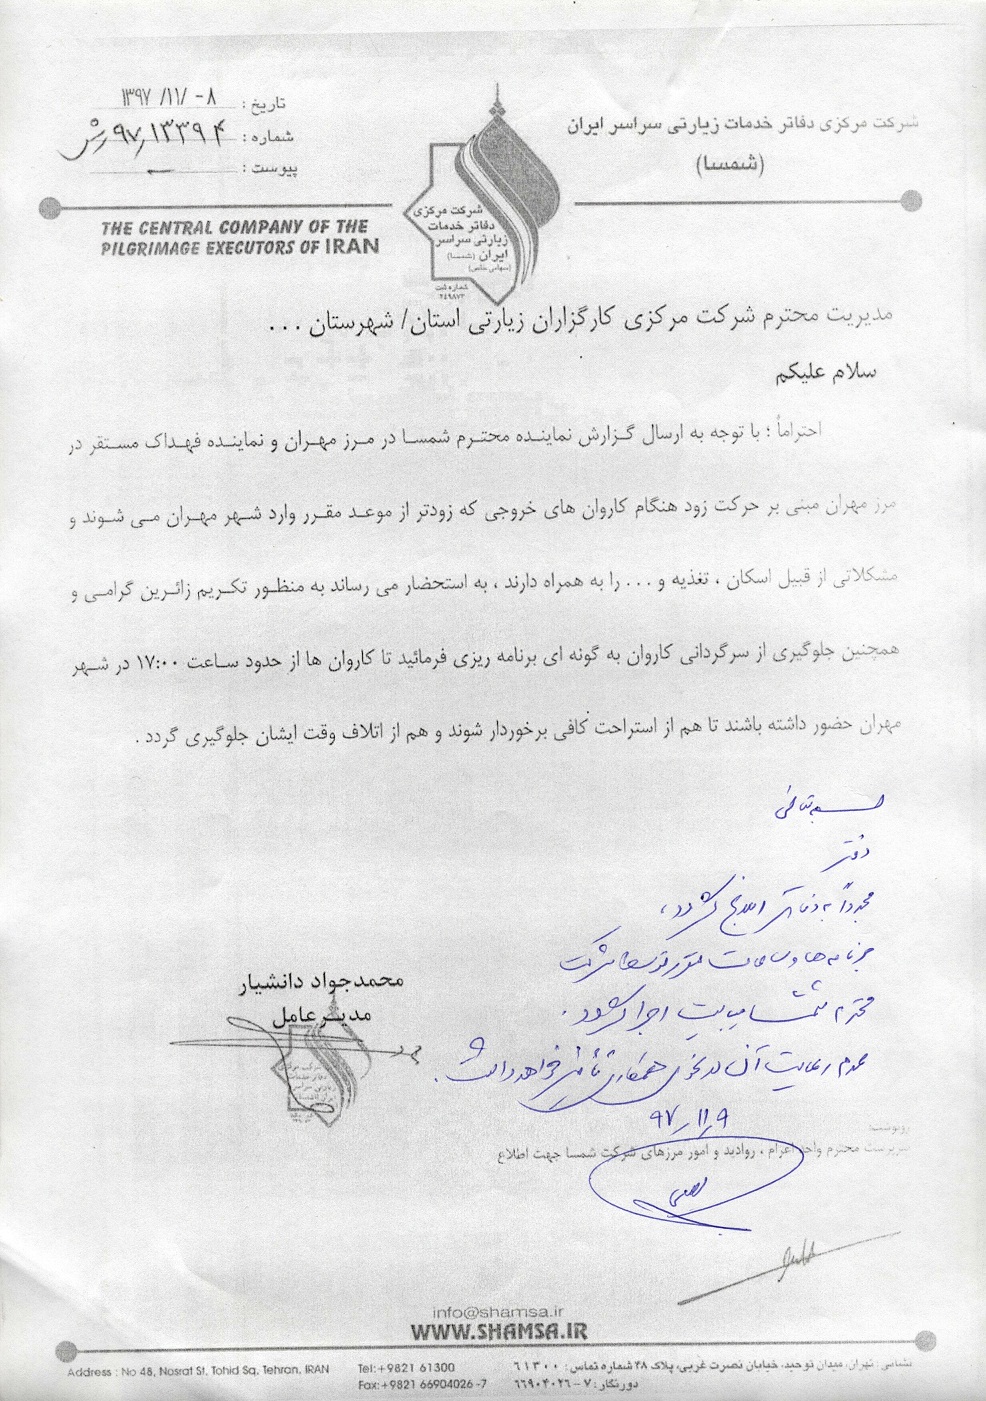 تاریخ : ۱۳۹۷/۱۱/۰۸
شماره : ۹۷/۱۳۳۹۴/ش
پیوست : –
شرکت مرکزی دفاتر خدمات زیارتی سراسر ایران
(شمسا)
THE CENTRAL COMPANY OF THE
PILGRIMAGE EXECUTORS OF IRAN
شرکت مرکزی
دفاتر خدمات
زیارتی سراسر
ایران (شمسا)
(سهامی خاص)
شماره ثبت
۲۴۹۸۷۳
مدیریت محترم شرکت مرکزی کارگزاران زیارتی استان/ شهرستان ...
سلام علیکم
احتراماً ؛ با توجه به ارسال گزارش نماینده محترم شمسا در مرز مهران و نماینده فهداک مستقر در
مرز مهران مبنی بر حرکت زود هنگام کاروان های خروجی که زودتر از موعد مقرر وارد شهر مهران می شوند و
مشکلاتی از قبیل اسکان ، تغذیه و ... را به همراه دارند ، به استحضار می رساند به منظور تکریم زائرین گرامی و
همچنین جلوگیری از سرگردانی کاروان به گونه ای برنامه ریزی فرمائید تا کاروان ها از حدود ساعت ۱۷:۰۰ در شهر
مهران حضور داشته باشند تا هم از استراحت کافی برخوردار شوند و هم از اتلاف وقت ایشان جلوگیری گردد .
بسمه تعالی
دفتر
مجدداً به دفاتر ابلاغ گردد،
برنامه ها و ساعات مقرر توسط شرکت
محترم شمسا میبایست اجرا گردد .
عدم رعایت آن در نحوه همکاری تأثیر خواهد داشت .
۹۷/۱۱/۹
محمدجواد دانشیار
مدیرعامل
رونوشت:
سرپرست محترم واحد اعزام ، روادید و امور مرزهای شرکت شمسا جهت اطلاع
info@shamsa.ir
WWW.SHAMSA.IR
Address : No 48, Nosrat St, Tohid Sq, Tehran, IRAN
Tel:+9821 61300
Fax:+9821 66904026 -7
نشانی : تهران، میدان توحید، خیابان نصرت غربی، پلاک ۴۸ شماره تماس : ۶۱۳۰۰
دورنگار : ۷-۶۶۹۰۴۰۲۶